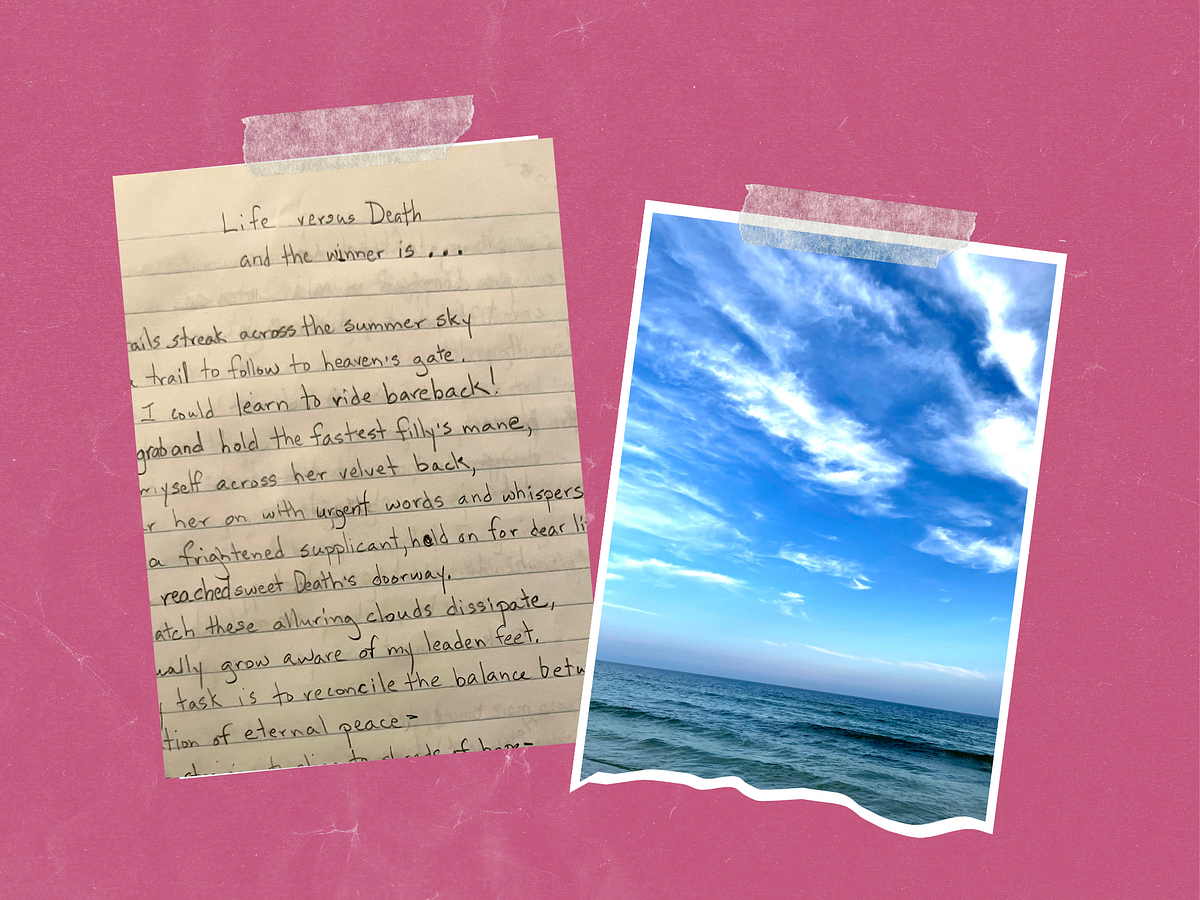 Life versus Death
and the winner is ...
ails streak across the summer sky
trail to follow to heaven's gate.
I could learn to ride bareback!
grab and hold the fastest filly's mane,
myself across her velvet back,
r her on with urgent words and whispers
a frightened supplicant, hold on for dear li
reached sweet Death's doorway.
atch these alluring clouds dissipate,
ually grow aware of my leaden feet.
task is to reconcile the balance betw
tion of eternal peace-
of hope-